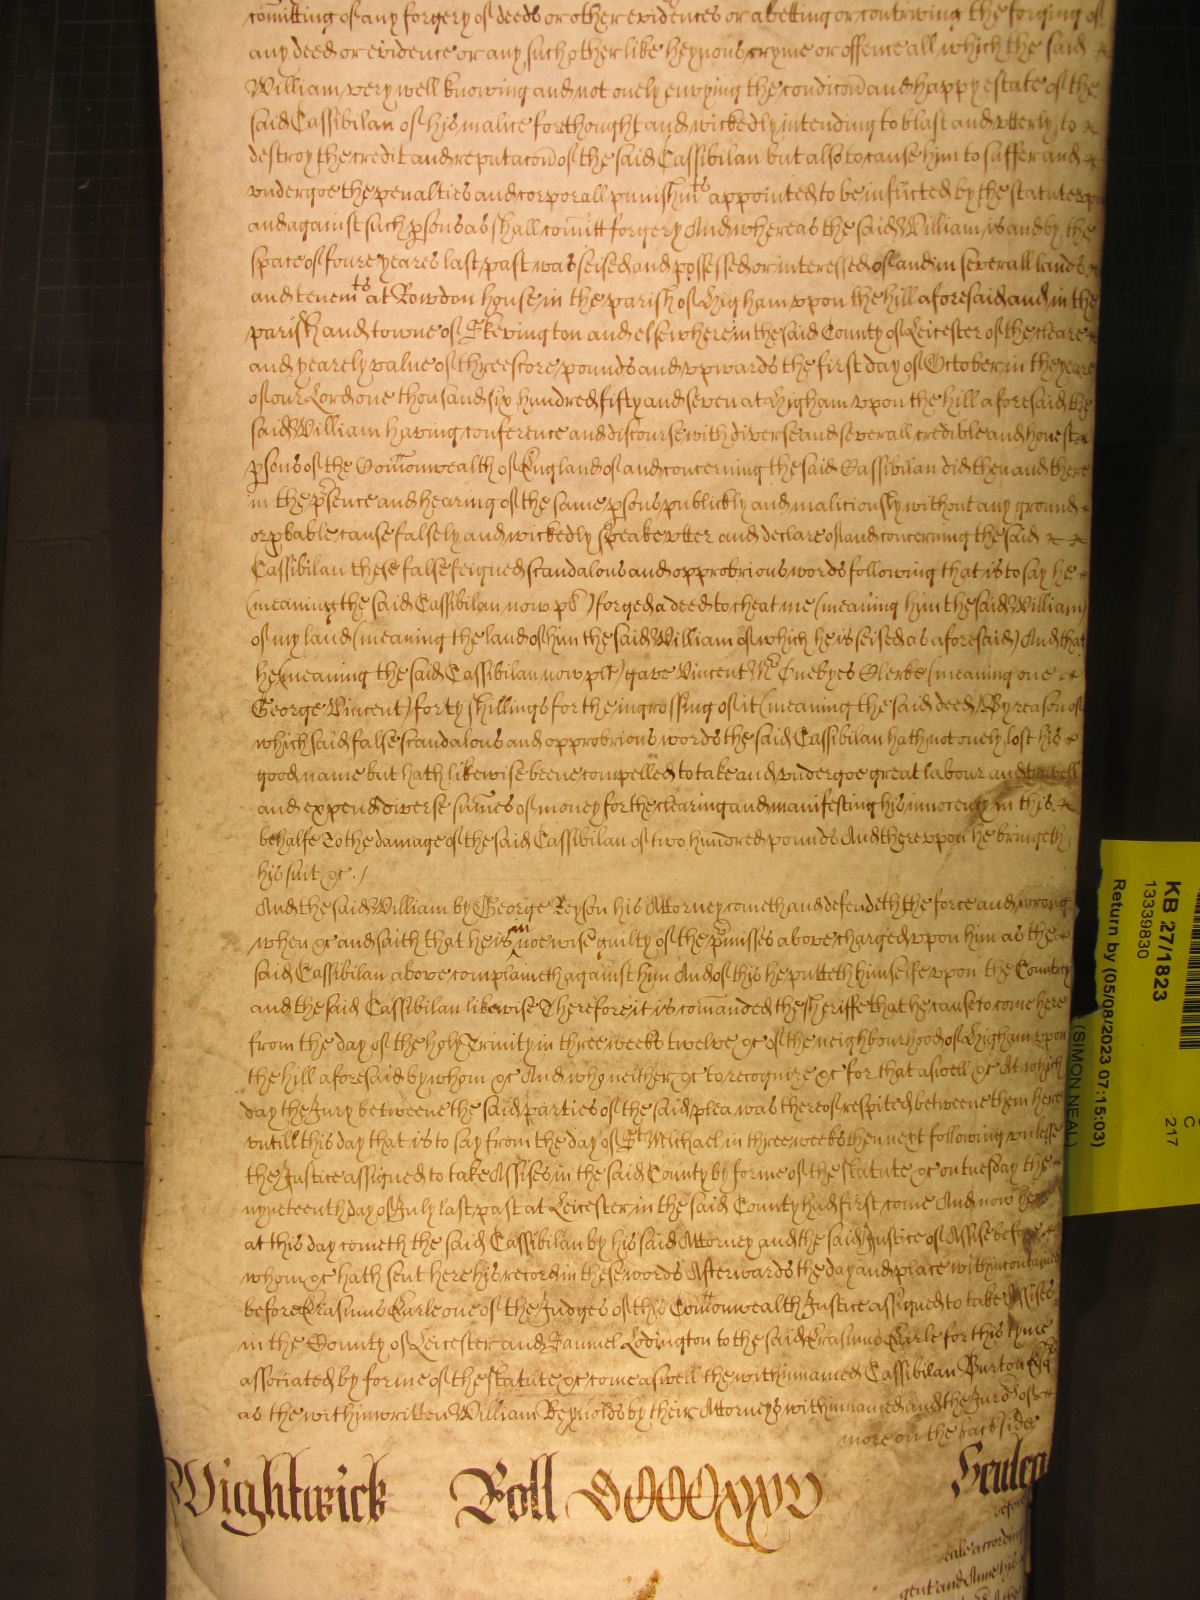 comitting of any forgery of deeds or other evidences or abetting or contriving the forging of
any deed or evidence or any such other like heynous cryme or offence all which the said
William very well knowing and not onely envying the condicon and happy estate of the
said Cassibilan of his malice forethought and wickedly intending to blast and utterly to
destroy the credit and reputacon of the said Cassibilan but also to cause him to suffer and
undergoe the penalties and corporall punishmts appointed to be inflicted by the statute
and against such psons as shall comitt forgery And whereas the said William is and by the
space of foure yeares last past was seised and possessed or interessed of and in severall lands
and tenemts at Rowdon house in the parish of Higham upon the hill aforesaid and in the
parish and towne of Skevington and elsewhere in the said County of Leicester of the cleare
and yearely value of threescore pounds and upwards the first day of October in the yeare
of our Lord one thousand six hundred fifty and seven at Higham upon the hill aforesaid the
said William having conference and discourse with diverse and severall credible and honest
psons of the Comonwealth of England of and concerning the said Cassibilan did then and there
in the psence and hearing of the same psons publickly and maliciously without any ground
or pbable cause falsely and wickedly speake utter and declare of and concerning the said
Cassibilan these false feigned scandalous and opprobrious words following that is to say he
(meaning the said Cassibilan now plt) forged a deed to cheat me (meaning him the said William)
of my land (meaning the land of him the said William of which he is seised as aforesaid) And that
he (meaning the said Cassibilan now plt) gave Vincent Mr Clerke (meaning one
George Vincent) forty shillings for the ingrossing of it (meaning the said deed) By reason of
which said false scandalous and opprobrious words the said Cassibilan hath not onely lost his
good name but hath likewise beene compelled to take and undergoe great labour and travell
and expend diverse sumes of money for the clearing and manifesting his innocency in this
behalfe To the damage of the said Cassibilan of two hundred pounds And thereupon he bringeth
his suit &c. /
And the said William by George Reyson his Attorney cometh and defendeth the force and wrong
when &c and saith that he is in noe wise guilty of the pmisses above charged upon him as the
said Cassibilan above complaineth against him And of this he putteth himselfe upon the Countrey
and the said Cassibilan likewise Therefore it is comanded the Sheriffe that he cause to come here
from the day of the holy Trinity in three weeks twelve &c of the neighbourhood of Higham upon
the hill aforesaid by whom &c And who neither &c to recognize &c for that aswell &c At which
day the Jury betweene the said parties of the said plea was thereof respited betweene them here
untill this day that is to say from the day of St Michael in three weeks then next following unlesse
the Justice assigned to take Assises in the said County by forme of the statute &c on tuesday the
nyneteenth day of July last past at Leicester in the said County had first come And now here
at this day cometh the said Cassibilan by his said Attorney and the said Justice of Assise before
whom &c hath sent here his record in these words Afterwards the day and place within contayned
before Erasmus Earle one of the Judges of this Comonwealth Justice assigned to take Assises
in the County of Leicester and Samuel Lodington to the said Erasmus Earle for this tyme
associated by forme of the statute &c come aswell the within named Cassibilan Burton Esqr
as the within written William Reynolds by their Attorneys within named and the Jurors of
more on the back side
Wightwick Roll
before
tale according
gent and Anne his
KB 27/1823
13339830
Return by (05/08/2023 07:15:03)
(SIMON NEAL)
C
217